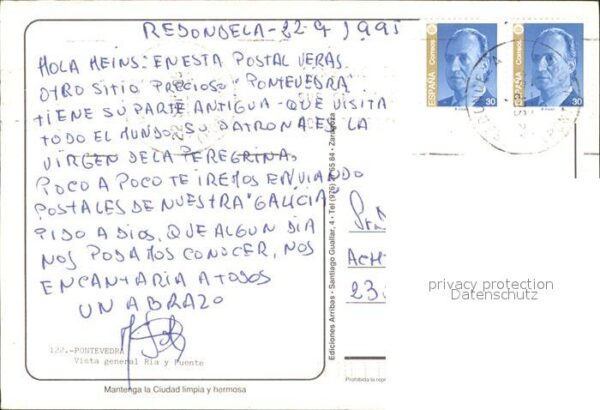 REDONDELA-22-9 1995
HOLA HEINS: EN ESTA POSTAL VERAS
OTRO SITIO PRECIOSO "PONTEVEDRA"
TIENE SU PARTE ANTIGUA-QUE VISITA
TODO EL MUNDO, SU PATRONA ES LA
VIRGEN DE LA PEREGRINA,
POCO A POCO TE IREMOS ENVIANDO
POSTALES DE NUESTRA "GALICIA"
PIDO A DIOS, QUE ALGUN DIA
NOS PODAMOS CONOCER, NOS
ENCANTARIA A TODOS
UN ABRAZO
122.-PONTEVEDRA
Vista general Ria y Puente
Mantenga la Ciudad limpia y hermosa
Ediciones Arribas - Santiago Guallar, 4 - Zaragoza
ESPAÑA Correos 30
ESPAÑA Correos 30
ACH
23
privacy protection
Datenschutz
Prohibida la repr